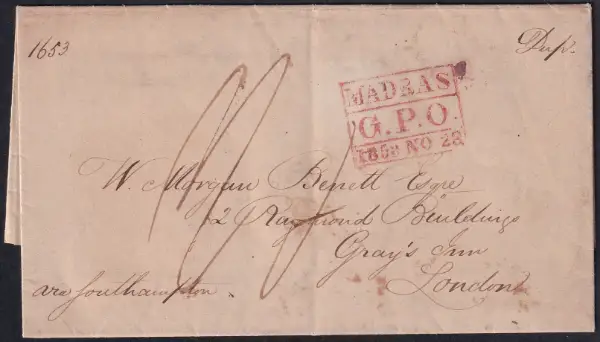 1653
Dup.
MADRAS
G.P.O.
1853 NO 28
W. Morgan Benett Esqre
2 Raymond Buildings
Gray's Inn
London
via Southampton.